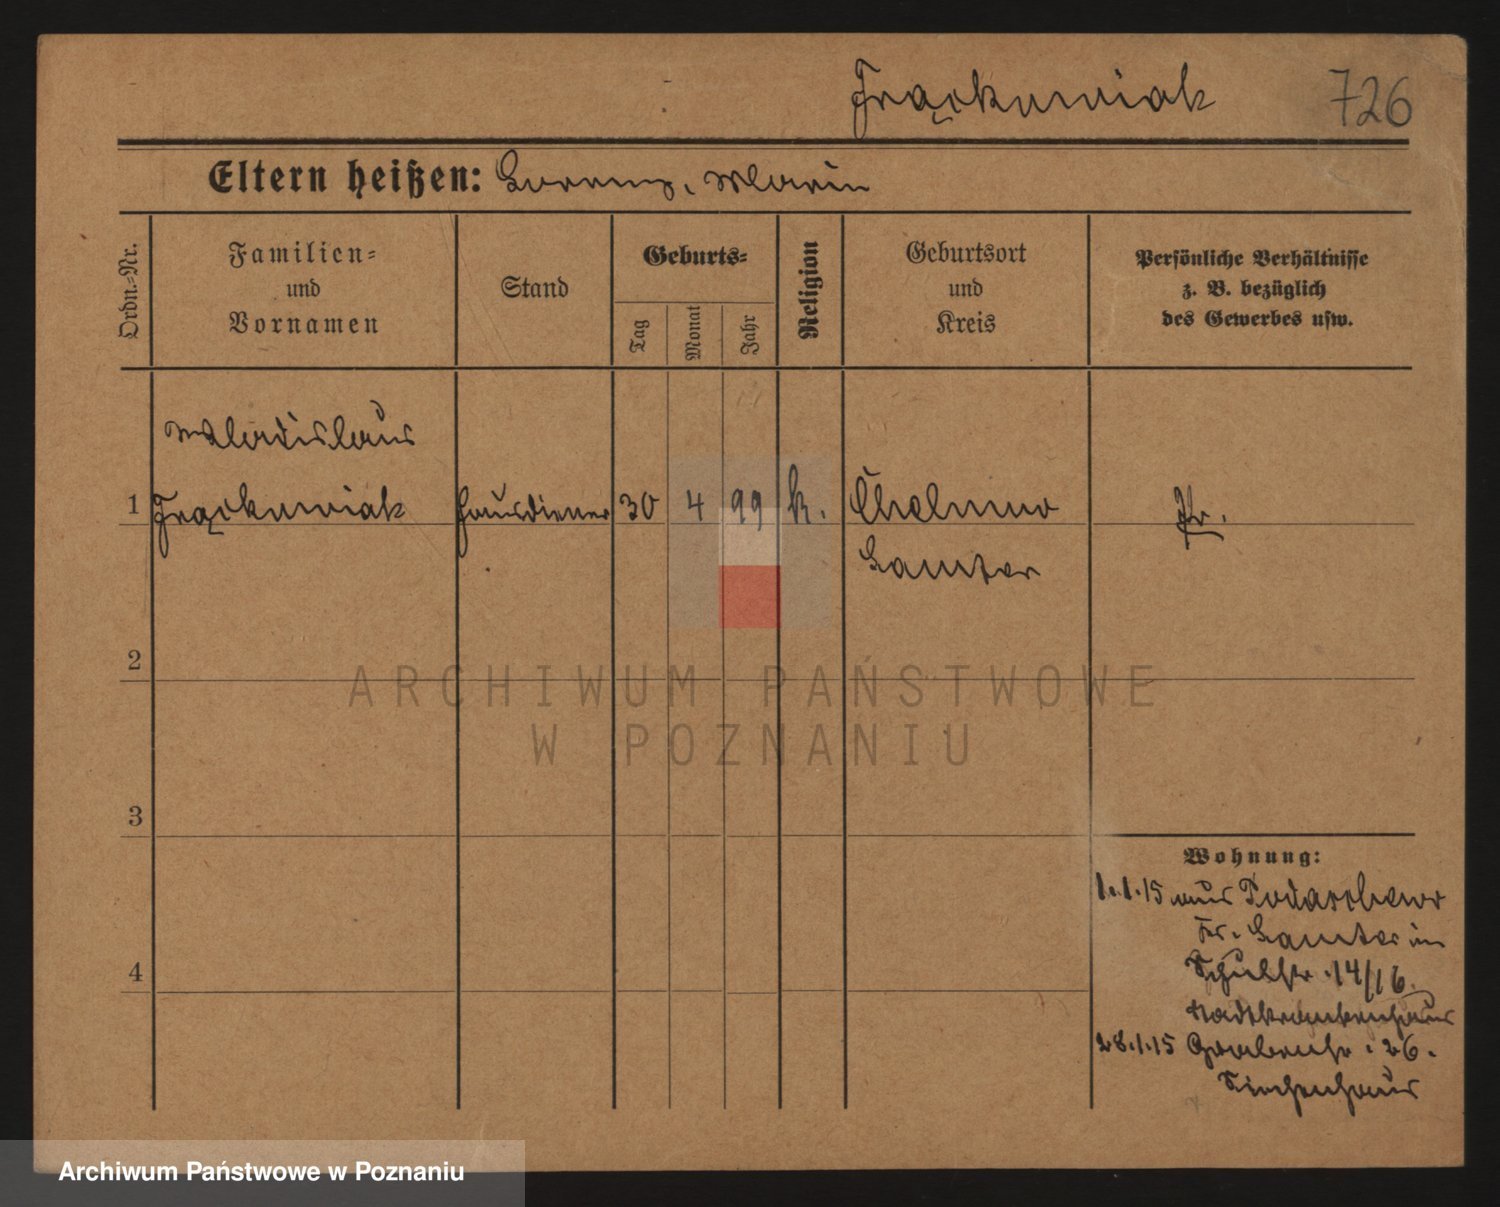 Frąckuwiak 726
Eltern heißen: Lorenz, Marie
Ordn.-Nr.
Familien-
und
Vornamen
Stand
Geburts-
Tag
Monat
Jahr
Religion
Geburtsort
und
Kreis
Persönliche Verhältnisse
z. B. bezüglich
des Gewerbes usw.
Wladislaus
1 Frąckuwiak Hausdiener 30 4 99 k. Chelmno Pr.
Samter
2
ARCHIWUM PAŃSTWOWE
W POZNANIU
3
Wohnung:
1.1.15 aus
Kr. Samter in
Schulstr. 14/16.
Stadtkrankenhaus
28.1.15 Grabenstr. 26.
Siechenhaus
4
Archiwum Państwowe w Poznaniu